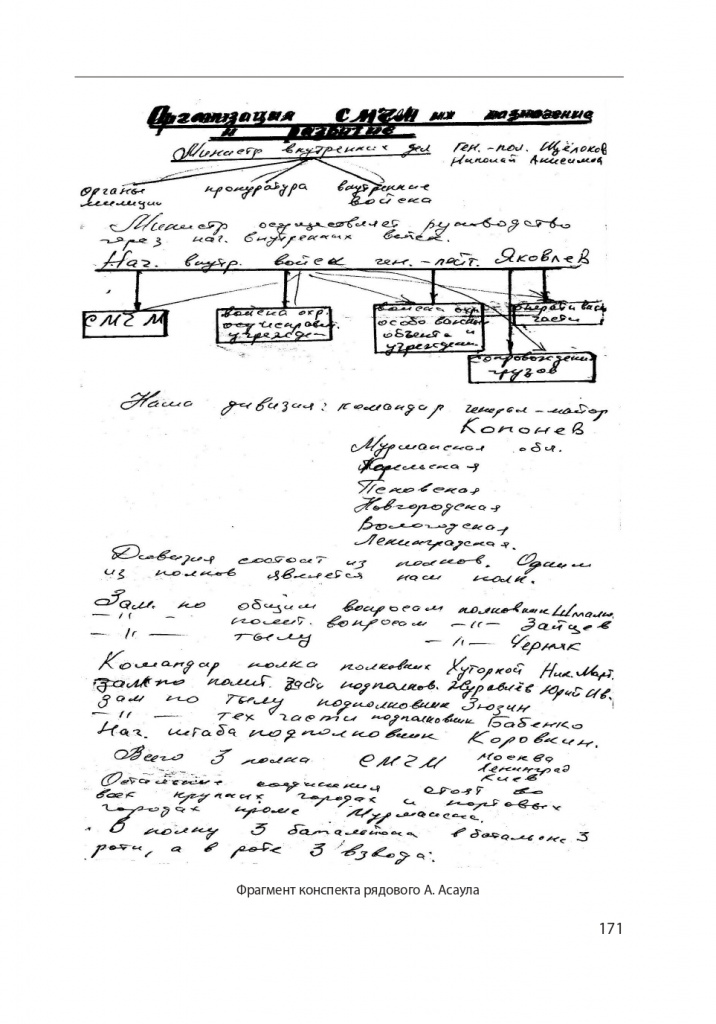 Организация СМЧМ их назначение
и развитие
Министр внутренних дел Ген.-пол. Щёлоков
Николай Анисимов
органы милиции
прокуратура
внутренние войска
Министр осуществляет руководство
через нач. внутренних войск.
Нач. внутр. войск ген.-лейт. Яковлев
СМЧМ
войска охр.
осущ исправит.
учрежден
войска охр.
особо важн
объекта и
учрежден
оперативн
части
сопровождения
грузов
Наша дивизия: командир генерал-майор
Копонев
Мурманская обл.
Карельская
Псковская
Новгородская
Вологодская
Ленинградская.
Дивизия состоит из полков. Одним
из полков является наш полк.
Зам. по общим вопросам полковник
– '' – полит. вопросам –''– Зайцев
– '' – тылу – '' – Черняк
Командир полка полковник Хуторной Ник. Март.
зам по полит. подполков. Журавлёв Юрий Ив.
зам по тылу подполковник Зюзин
– '' – тех части подполковник Бабенко
Нач. штаба подполковник Коровкин.
Всего 3 полка СМЧМ Москва
Ленинград
Киев
Остальные соединения стоят во
всех крупных городах и портовых
городах кроме Мурманска.
В полку 3 батальона в батальоне 3
роти, а в роте 3 взвода.
Фрагмент конспекта рядового А. Асаула
171